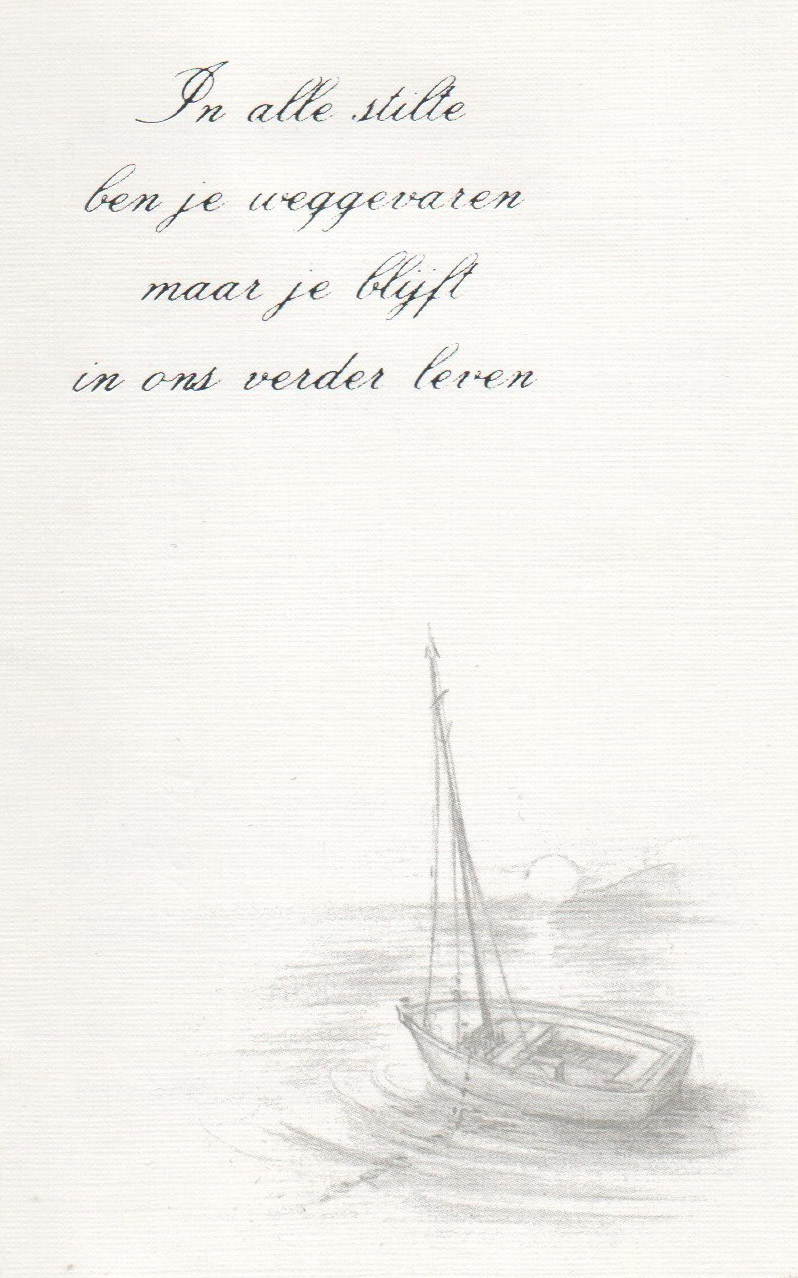 In alle stilte
ben je weggevaren
maar je blijft
in ons verder leven